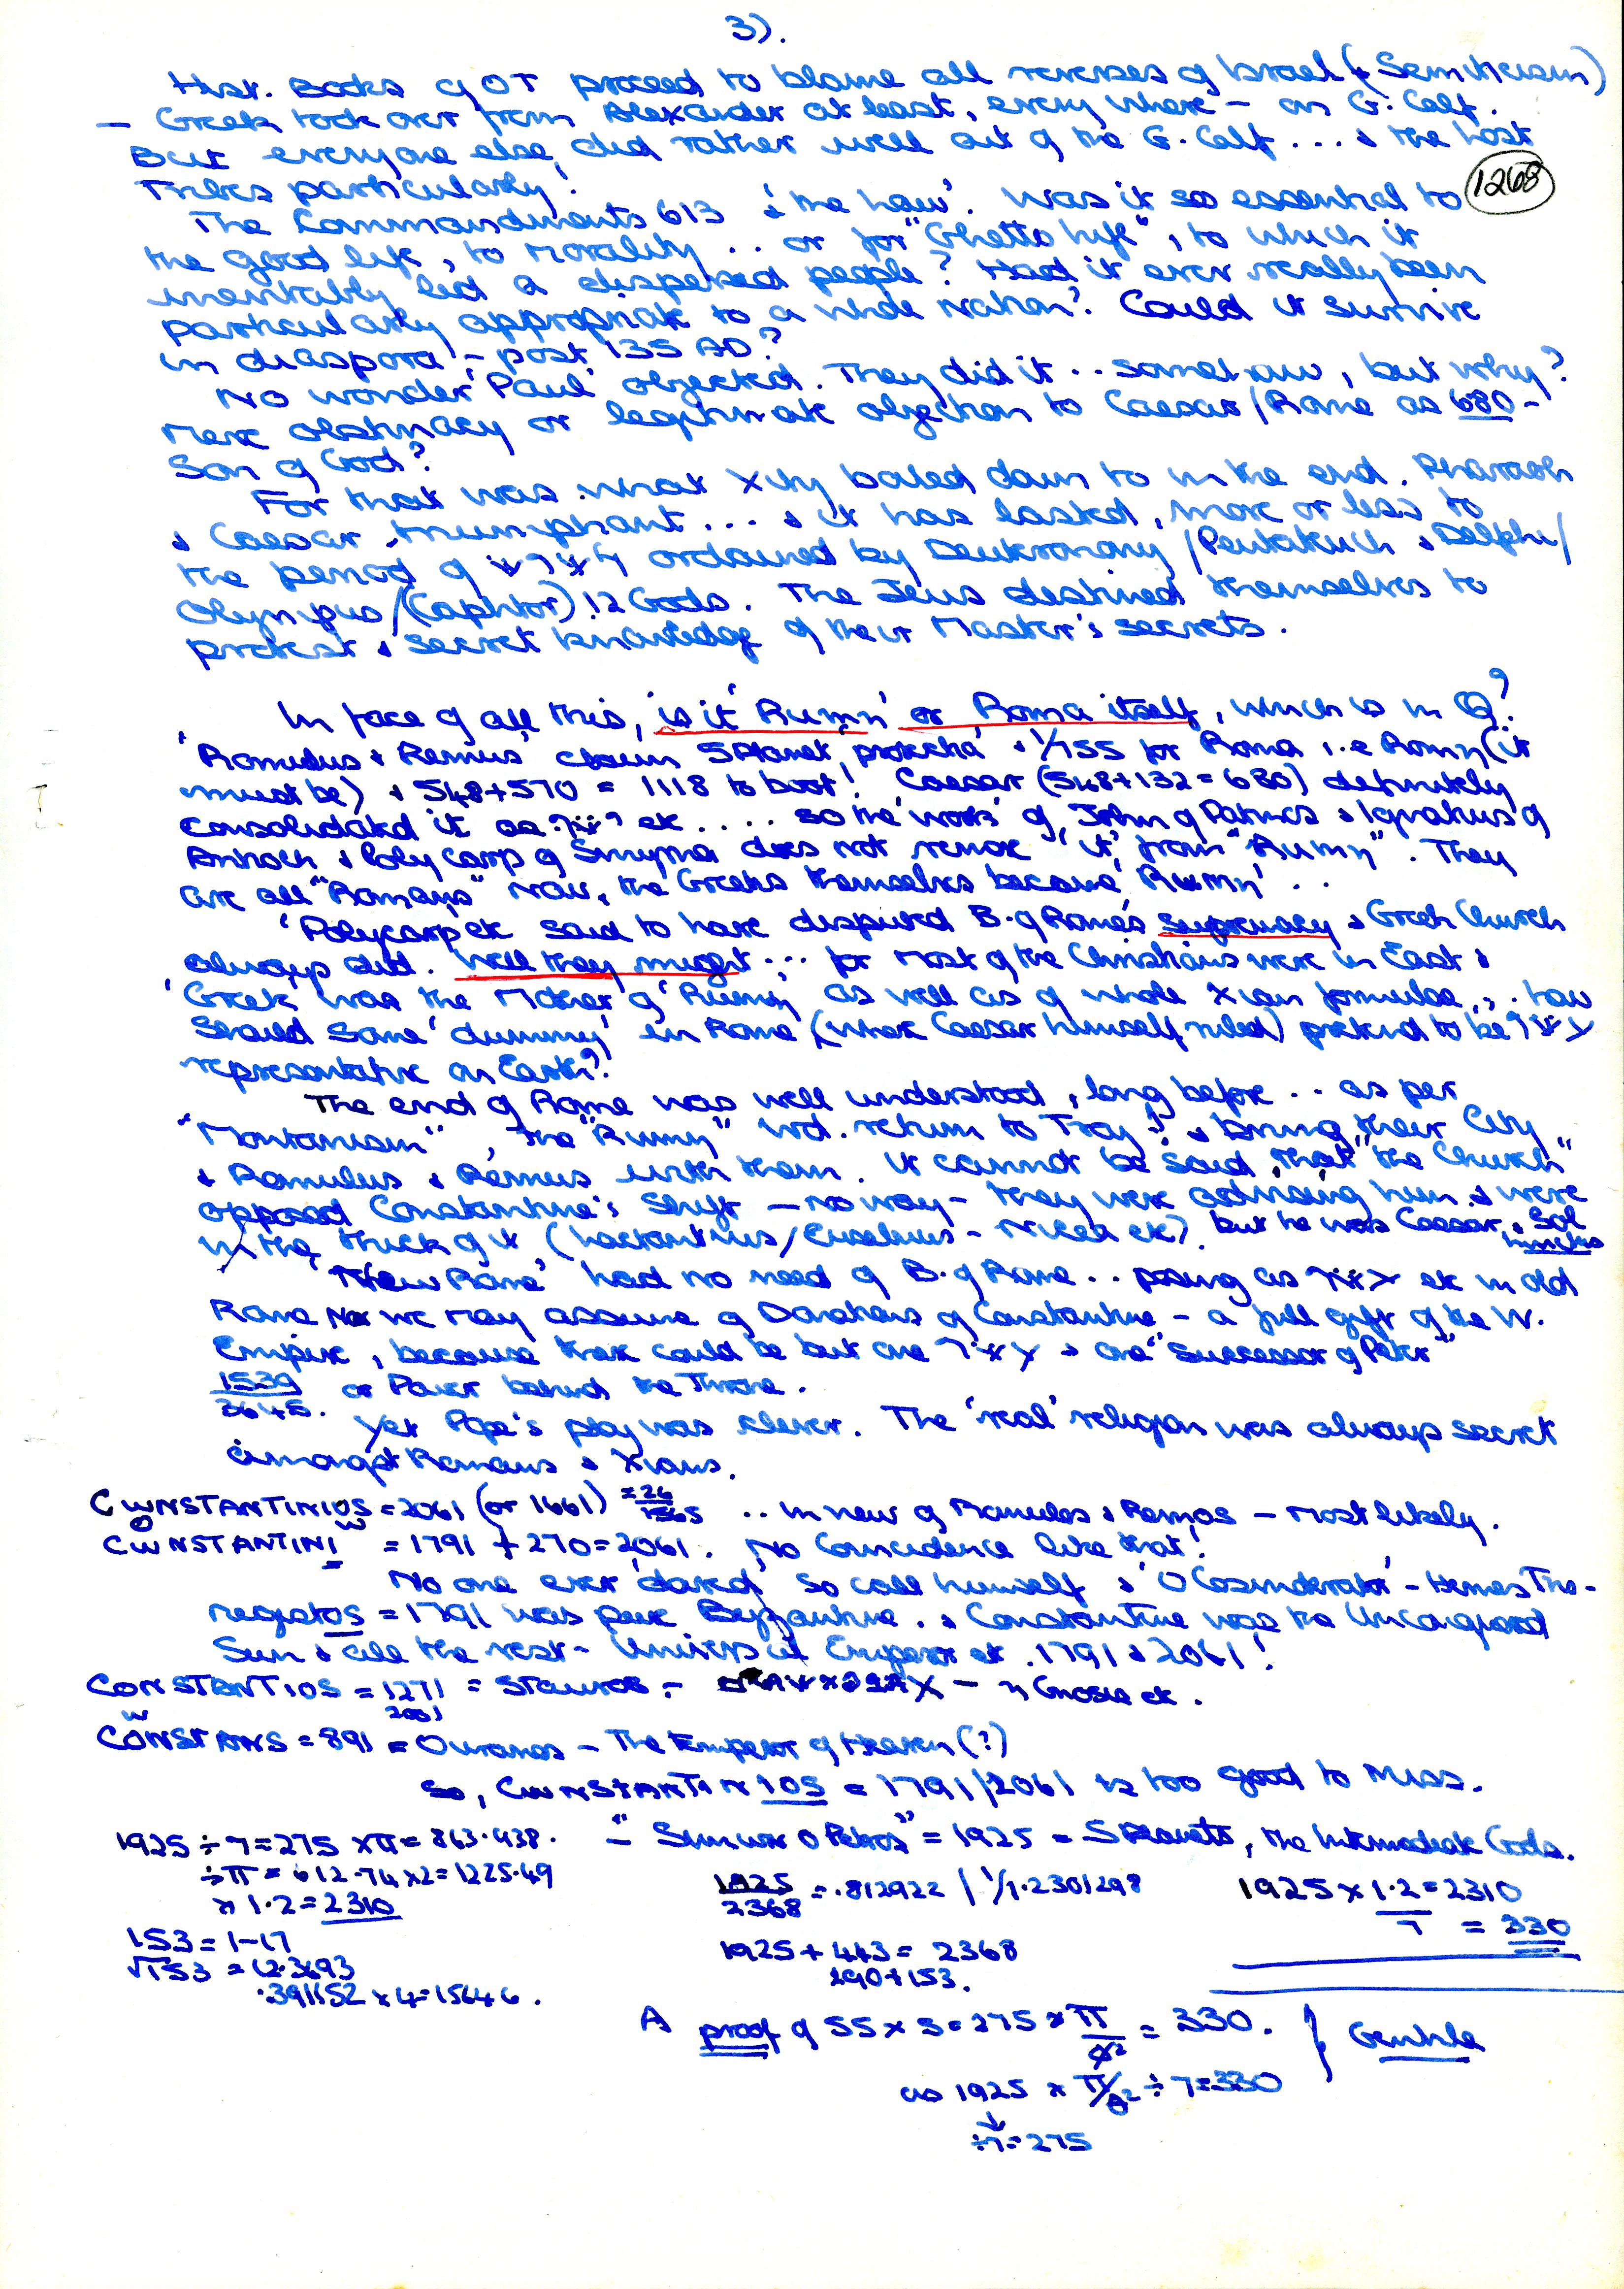 3).
Hist. Books of OT proceed to blame all reverses of Israel (& Semiticism)
– Greek took over from Alexander at least, every where – on G. Calf.
But everyone else, did rather well out of the G. Calf ... & the Lost
Tribes particularly!
1268
The Commandments 613 & 'the Law'. Was it so essential to
the good life, to Morality .. or for "Ghetto life", to which it
inevitably led a dispersed people? Had it ever really been
particularly appropriate to a whole Nation? Could it survive
in diaspora – post 135 AD?
No wonder 'Paul' objected. They did it .. somehow, but why?
Mere obstinacy or legitimate objection to Caesar/Rome as 680 –
Son of God?
For that was what Xity boiled down to in the end. Pharaoh
& Caesar triumphant ... & it has lasted, more or less to
the period of ordained by Deuteronomy/Pentateuch & Delphi/
Olympus/(Caphtor) 12 Gods. The Jews destined themselves to
protest & secret knowledge of their Master's secrets.
In face of all this, is it 'Rumn' or Roma itself, which is in Q?
'Romulus & Remus' claim 5 Planet 'protecta' & 1/755 for Roma i.e Romn (it
must be) & 548+570 = 1118 to boot! Caesar (548+132=680) definitely
consolidated it as etc .... so the 'work' of John of Patmos & Ignatius of
Antioch & Polycarp of Smyrna does not remove 'it' from "Rumn". They
are all "Romans" now, the Greeks themselves became 'Rumn' ..
'Polycarp' etc said to have disputed B. of Rome's supremacy & Greek Church
always did. Well they might ... for most of the Christians were in East &
'Greek' was the Mother of 'Rumn' as well as of whole Xian formulae ... how
should some 'dummy' in Rome (where Caesar himself ruled) pretend to be
representative on Earth?
The end of Rome was well understood, long before .. as per
"Montanism", the "Rumn" wd. return to Troy! & bring their City
& Romulus & Remus with them. It cannot be said, that "the Church"
opposed Constantine's shift – no way – they were advising him & were
in the thick of it (Lactantius/Eusebius – Nicea etc). but he was Caesar & Sol
Invictus
'New Rome' had no need of B. of Rome .. posing as etc in old
Rome we may assume of Donations of Constantine – a full gift of the W.
Empire, because there could be but one & one "Successor of Peter"
1539
3645. or Power behind the Throne.
Yet Pope's play was clever. The 'real' religion was always secret
amongst Romans & Xians.
CWNSTANTINIOS = 2061 (or 1661) = 26/1565 .. in view of Romulus & Remos – most likely.
O W
CWNSTANTINI = 1791 + 270 = 2061. No Coincidence like that!
No one ever 'dared' so call himself & 'O Cosmokrator' – Hermes Tris-
megistos = 1791 was pure Byzantine .. & Constantine was the Unconquered
Sun & all the rest – Universal Emperor etc. 1791 & 2061!
CONSTANTIOS = 1271 = Stauros – – Gnosis etc.
2001
W
CONSTANS = 891 = Ouranos – The Emperor of Heaven (?)
So, CWNSTANTINIOS = 1791/2061 is too good to Miss.
1925 ÷ 7 = 275 × π = 863.938. – "Simwn O Petros" = 1925 = 5 Planets, the Intermediate Gods.
÷ π = 612.74 × 2 = 1225.49
× 1.2 = 2310
1925/2368 = .812922 | 1/1.2301298
1925 × 1.2 = 2310
7 = 330
153 = 1–17
√153 = 12.3693
.391152 × 4 = 15646.
1925 + 443 = 2368
290 + 153.
A proof of 55 × 5 = 275 × π/ø² = 330. } Gentile
as 1925 × π/ø² ÷ 7 = 330
↓
÷7 = 275